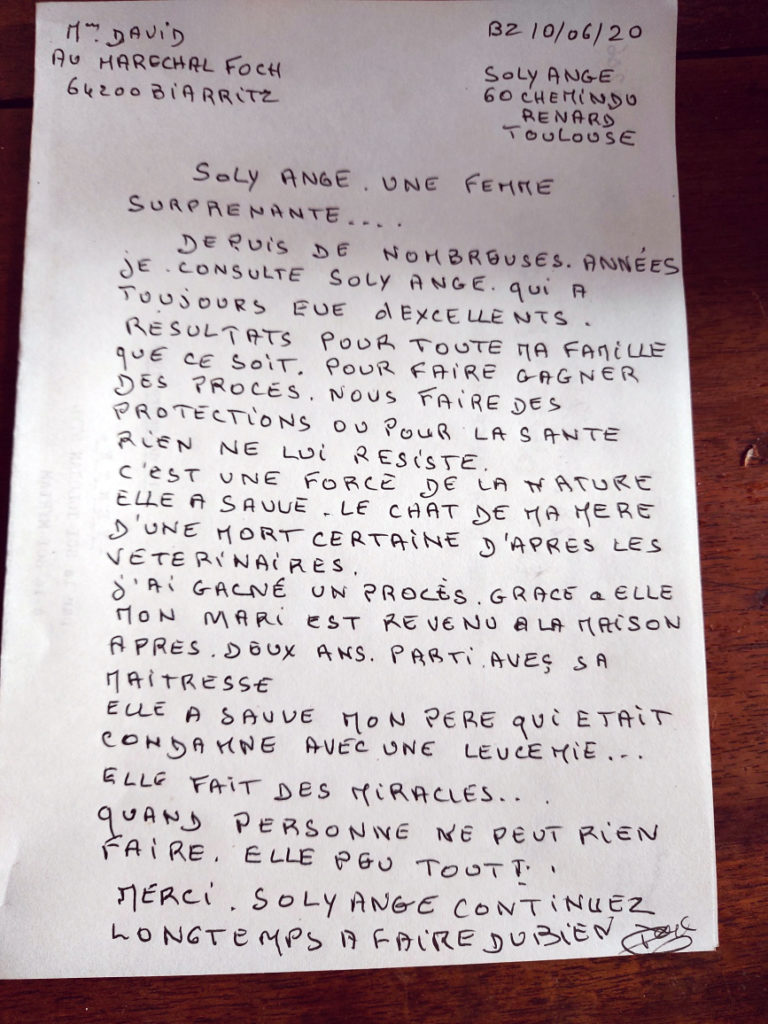 Mme DAVID
AU MARECHAL FOCH
64200 BIARRITZ
BZ 10/06/20
SOLY ANGE
60 CHEMINDU
RENARD
TOULOUSE
SOLY ANGE. UNE FEMME
SURPRENANTE....
DEPUIS DE NOMBREUSES. ANNÉES
JE. CONSULTE SOLY ANGE. QUI A
TOUJOURS EUE dEXCELLENTS.
RESULTATS POUR TOUTE MA FAMILLE
QUE CE SOIT. POUR FAIRE GAGNER
DES PROCES. NOUS FAIRE DES
PROTECTIONS OU POUR LA SANTE
RIEN NE LUI RESISTE.
C'EST UNE FORCE DE LA NATURE
ELLE A SAUVE. LE CHAT DE MA MERE
D'UNE MORT CERTAINE D'APRES LES
VETERINAIRES.
J'AI GAGNÉ UN PROCÈS. GRACE a ELLE
MON MARI EST REVENU A LA MAISON
APRES. DEUX ANS. PARTI. AVEÇ SA
MAITRESSE
ELLE A SAUVE MON PERE QUI ETAIT
CONDAMNE AVEC UNE LEUCEMIE...
ELLE FAIT DES MIRACLES...
QUAND PERSONNE NE PEUT RIEN
FAIRE. ELLE PEU TOUT!.
MERCI. SOLY ANGE CONTINUEZ
LONGTEMPS A FAIRE DU BIEN